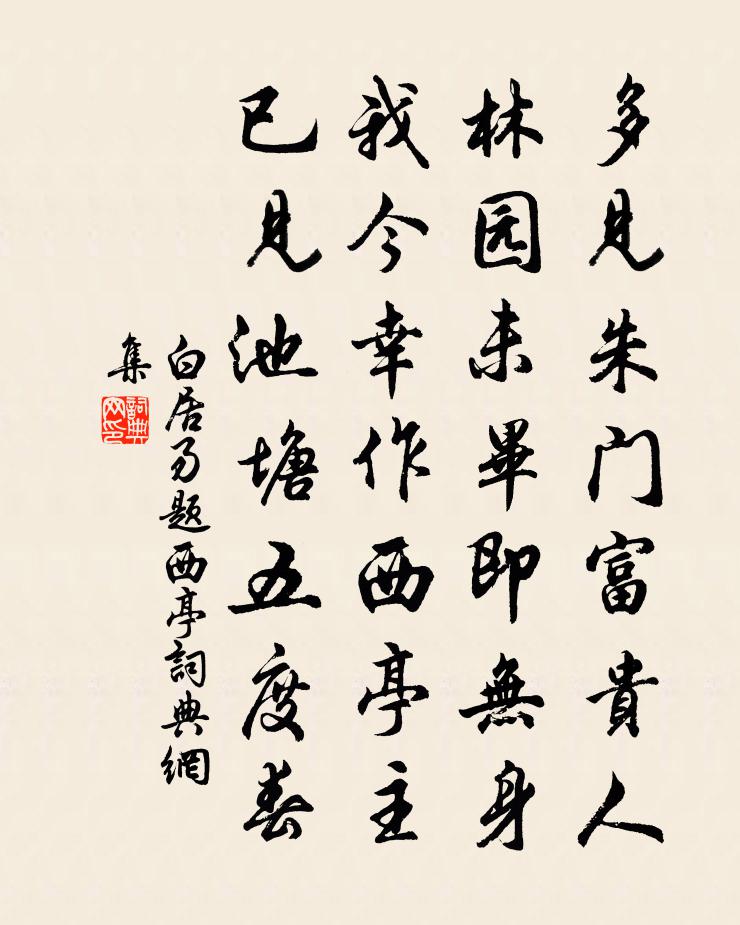 多見朱门富貴人
林园未畢即無身
我今幸作西亭主
已見池塘五度春
白居易題西亭詞典網
集
詞典
网印